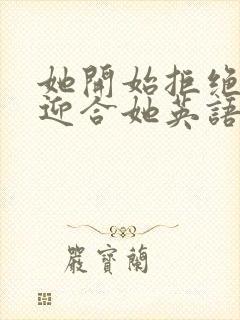 她開始拒絕
迎合她英語
嚴寶蘭